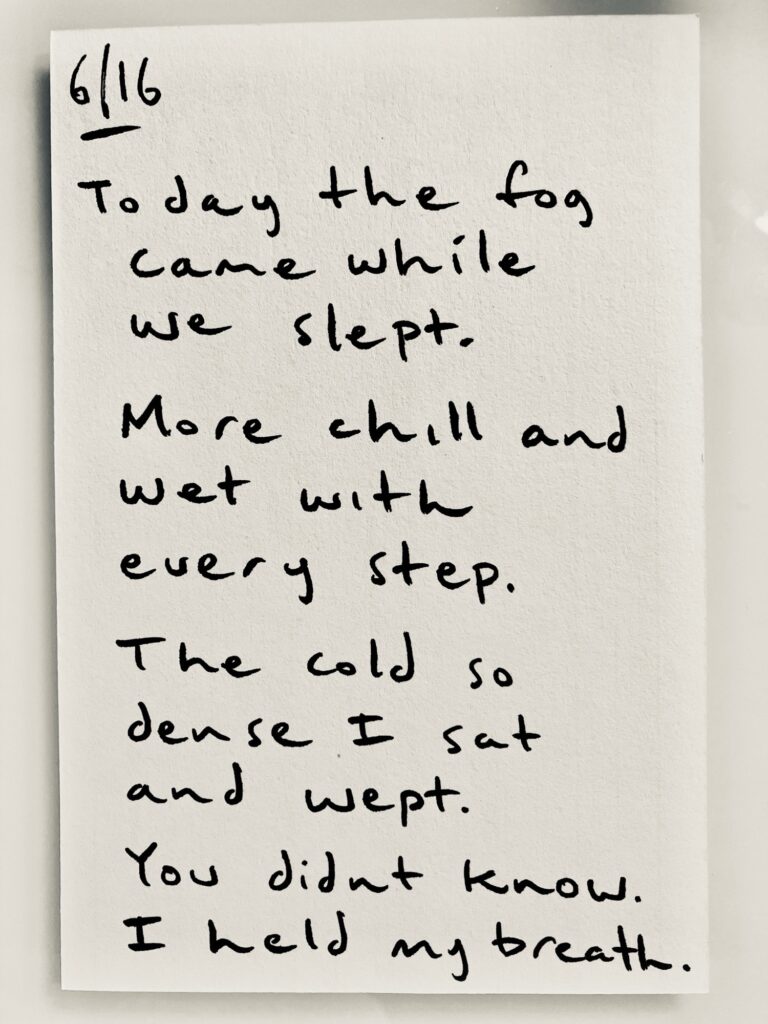 6/16
Today the fog
came while
we slept.
More chill and
wet with
every step.
The cold so
dense I sat
and wept.
You didnt know.
I held my breath.